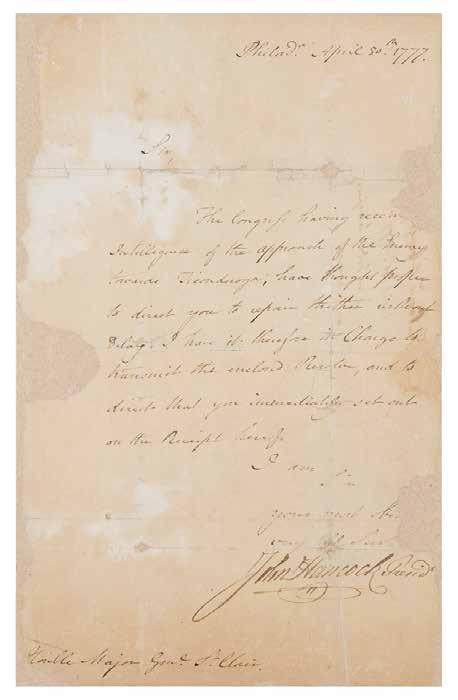 Philad^a. April 30^th. 1777.
Sir,
The Congress having receiv
Intelligence of the approach of the Enemy
towards Ticonderoga, have thought proper
to direct you to repair thither without
Delay. I have it therefore in Charge to
transmit the enclosed Resolve, and to
direct that you immediately set out
on the Receipt hereof.
I am
Sir
your most
very
John Hancock Presid^t
Honble Major Gen^l. S^t. Clair.